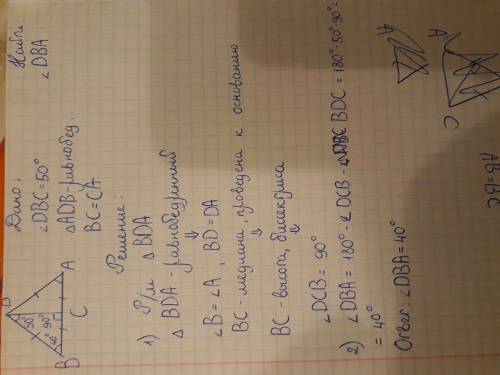 Дано:
∠DBC=50°
△ADB-равнобед.
BC=CA
Найти:
∠DBA
D
50°
90°
40°
B
C
A
Решение:
1) Р/м △BDA
△BDA-равнобедренный
⇓
∠B=∠A, BD=DA
BC-медиана, проведена к основанию
⇓ ⇓
BC-высота, биссектриса
∠DCB=90°
2) ∠DBA=180°-∠DCB-∠BDC=180°-50°-90°=
=40°
Ответ: ∠DBA=40°
A
C
AB=BC